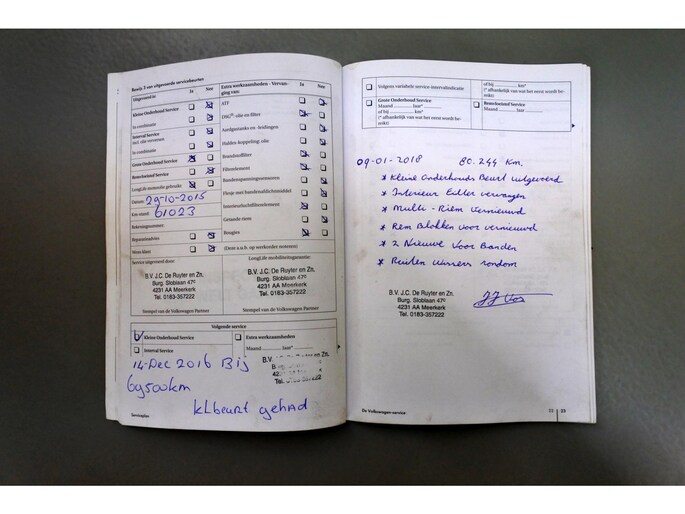 Bewijs 2 van uitgevoerde servicebeurten
Uitgevoerd is: Ja Nee
Kleine Onderhoud Service
In combinatie
Interval Service
incl. olie verversen
In combinatie
Grote Onderhoud Service
Remvloeistof Service
LongLife-motorolie gebruikt
Datum 29-10-2015
Km-stand 61023
Rekeningnummer
Reparatieadvies
Motorblaer
Extra werkzaamheden - Vervanging van: Ja Nee
ATF
DSG®-olie en filter
Aardgastanks en -leidingen
Haldex koppeling: olie
Brandstoffilter
Filterelement
Bandenspanningssensoren
Flesje met bandenafdichtmiddel
Interieurluchtfilterelement
Getande riem
Bougies
(Deze a.u.b. op werkorder noteren)
Service uitgevoerd door:
B.V. J.C. De Ruyter en Zn.
Burg. Sloblaan 47c
4231 AA Meerkerk
Tel. 0183-357222
Stempel van de Volkswagen Partner
LongLife mobiliteitsgarantie
B.V. J.C. De Ruyter en Zn.
Burg. Sloblaan 47c
4231 AA Meerkerk
Tel. 0183-357222
Stempel van de Volkswagen Partner
Volgende service
Kleine Onderhoud Service
Interval Service
Extra werkzaamheden
Maand Jaar*
B.V. De Ruyter en Zn.
Meerkerk
0183-357222
14-Dec 2016 Bij
69500km
kLbeurt gehad
Serviceplan
Volgens variabele service-intervalindicatie
Grote Onderhoud Service
Maand Jaar*
of bij km*
(* afhankelijk van wat het eerst wordt bereikt)
of bij km*
(* afhankelijk van wat het eerst wordt bereikt)
Remvloeistof Service
Maand Jaar
09-01-2018 80.244 Km.
* Kleine Onderhouds Beurt uitgevoerd
* Interieur Filter vervangen
* Multi-Riem Vernieuwd
* Rem Blokken Voor vernieuwd
* 2 Nieuwe Voor Banden
* Ruiten Wissers rondom
B.V. J.C. De Ruyter en Zn.
Burg. Sloblaan 47c
4231 AA Meerkerk
Tel. 0183-357222
JJ Vos
De Volkswagen-service
22 | 23